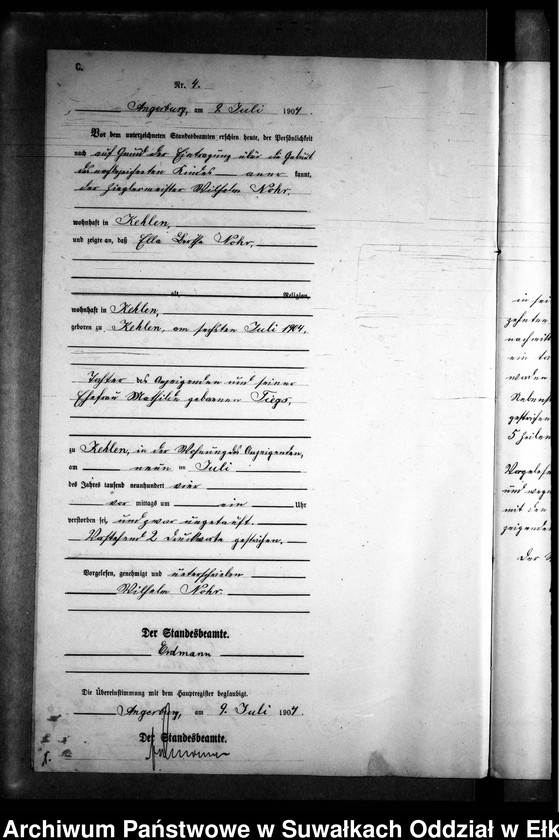 C.
Nr. 4.
Angerburg, am 9. Juli 1904.
Vor dem unterzeichneten Standesbeamten erschien heute, der Persönlichkeit
nach auf Grund der Eintragung über die Geburt
des nachbezeichneten Kindes aner kannt,
der Zieglermeister Wilhelm Nohr,
wohnhaft in Kehlen,
und zeigte an, daß Ella Nohr,
alt, Religion,
wohnhaft in Kehlen,
geboren zu Kehlen, am sechsten Juli 1904,
Tochter des Anzeigenden und seiner
Ehefrau Mathilde geborenen Tiegs,
zu Kehlen, in der Wohnung des Anzeigenden,
am neun ten Juli
des Jahres tausend neunhundert vier
vor mittags um ein Uhr
verstorben sei, und zwar ungetauft.
Vorstehend 2 Druckworte gestrichen.
Vorgelesen, genehmigt und unterschrieben
Wilhelm Nohr.
Der Standesbeamte.
Erdmann
Die Übereinstimmung mit dem Hauptregister beglaubigt.
Angerburg, am 9. Juli 1904.
Der Standesbeamte.
in sei
zehnten
nachmitt
ein
worden
Nebenst
gestrichen
5 Zeilen
Vorgelese
und wege
mit den
zeigenden
Der
Archiwum Państwowe w Suwałkach Oddział w Ełk